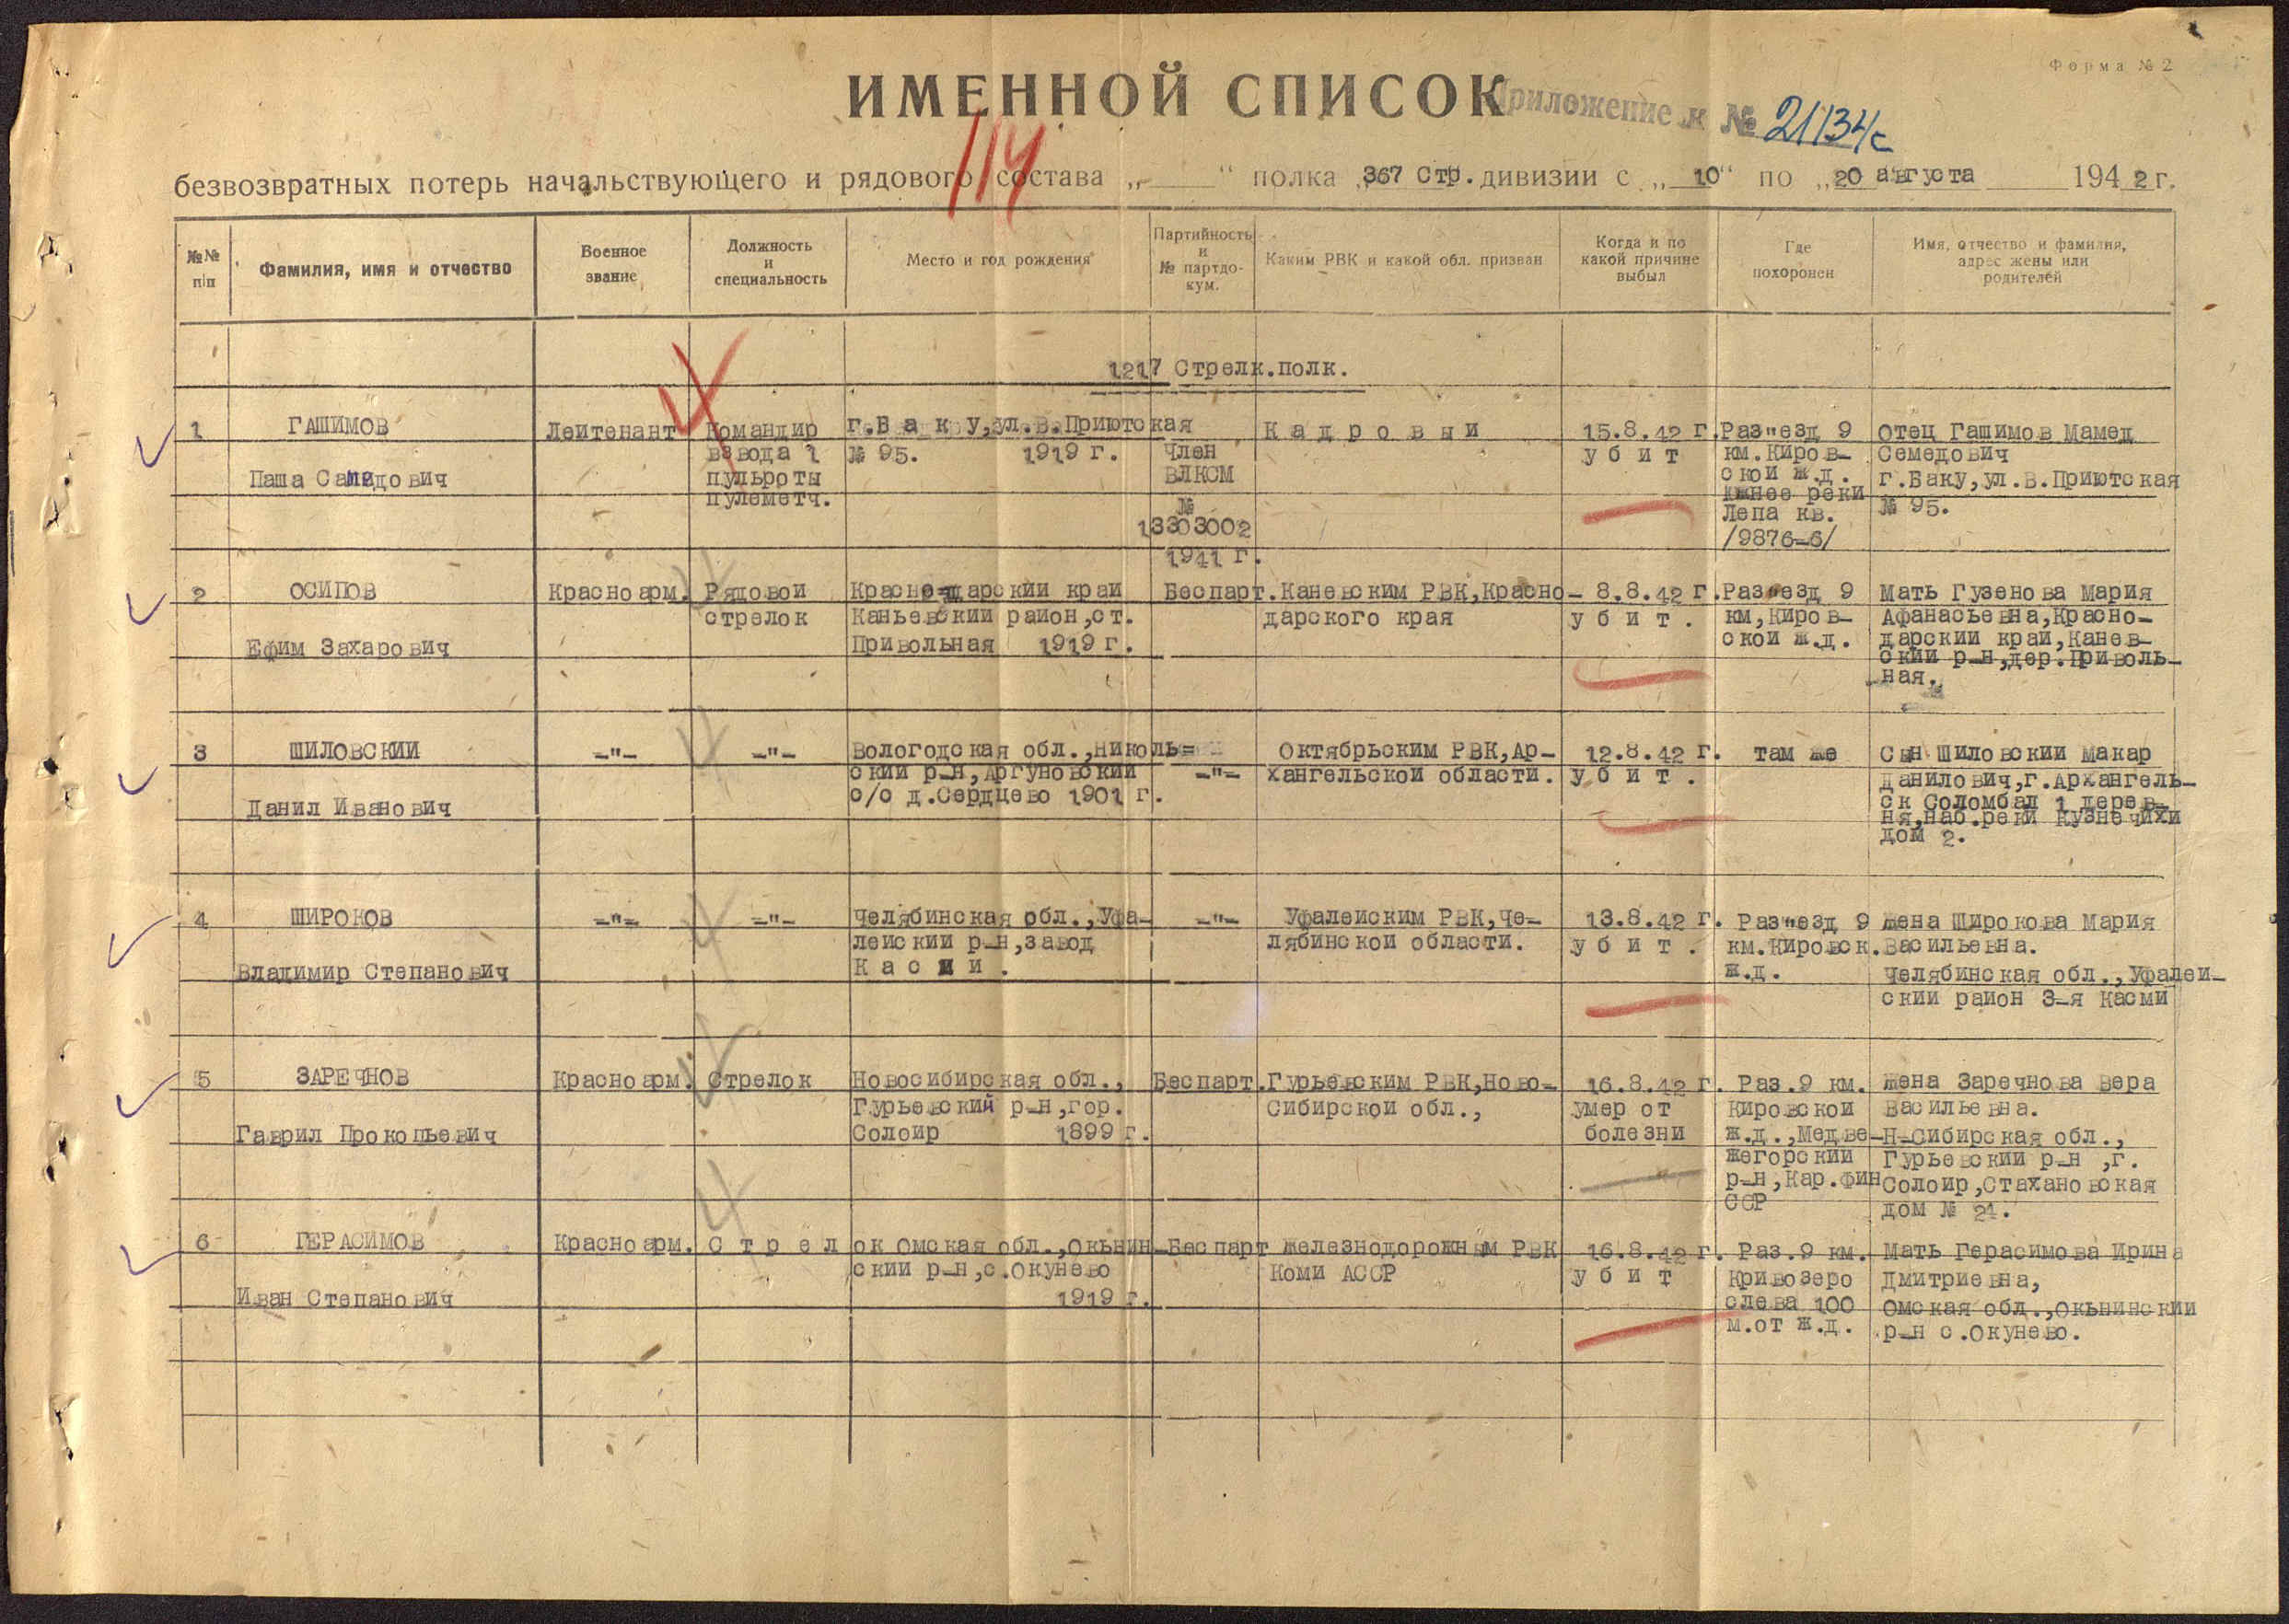 Форма № 2
ИМЕННОЙ СПИСОК
Приложение к № 21134с
114
безвозвратных потерь начальствующего и рядового состава „ “ полка 367 Стр. дивизии с „ 10 “ по „ 20 августа 1942 г.
№№ п/п
Фамилия, имя и отчество
Военное звание
Должность и специальность
Место и год рождения
Партийность и № партдо-кум.
Каким РВК и какой обл. призван
Когда и по какой причине выбыл
Где похоронен
Имя, отчество и фамилия, адрес жены или родителей
1217 Стрелк.полк.
1
ГАШИМОВ
Паша Самедович
Лейтенант
Командир
взвода 1
пульроты
пулеметч.
г.Баку,ул.В.Приютская
№ 95. 1919 г.
Член
ВЛКСМ
№
13303002
1941 г.
Кадровый
15.8.42 г.
убит
Раз"езд 9
км.Киров-
ской ж.д.
южнее реки
Лепа кв.
/9876-6/
Отец Гашимов Мамед
Семедович
г.Баку,ул.В.Приютская
№ 95.
2
ОСИПОВ
Ефим Захарович
Красноарм.
Рядовой
стрелок
Красно-дарский край
Каньевский район,ст.
Привольная 1919 г.
Беспарт.
Каневским РВК,Красно-
дарского края
8.8.42 г.
убит.
Раз"езд 9
км,Киров-
ской ж.д.
Мать Гузенова Мария
Афанасьевна,Красно-
дарский край,Канев-
ский р-н,дер.Приволь-
ная.
3
ШИЛОВСКИЙ
Данил Иванович
-"-
-"-
Вологодская обл.,Николь-
ский р-н,Аргуновский
с/с д.Сердцево 1901 г.
-"-
Октябрьским РВК,Ар-
хангельской области.
12.8.42 г.
убит.
там же
Сын Шиловский Макар
Данилович,г.Архангель-
ск Соломбал 1 дерев-
ня,наб.реки Кузнечихи
дом 2.
4
ШИРОКОВ
Владимир Степанович
-"-
-"-
Челябинская обл.,Уфа-
лейский р-н,завод
Касли.
-"-
Уфалейским РВК,Че-
лябинской области.
13.8.42 г.
убит.
Раз"езд 9
км.Кировск.
ж.д.
Жена Широкова Мария
Васильевна.
Челябинская обл.,Уфалей-
ский район 3-я Касми
5
ЗАРЕЧНОВ
Гаврил Прокопьевич
Красноарм.
Стрелок
Новосибирская обл.,
Гурьевский р-н,гор.
Солоир 1899 г.
Беспарт.
Гурьевским РВК,Ново-
Сибирской обл.,
16.8.42 г.
умер от
болезни
Раз.9 км.
Кировской
ж.д.,Медве-
жегорский
р-н,Кар.фин
ССР
Жена Заречнова Вера
Васильевна.
Н-Сибирская обл.,
Гурьевский р-н ,г.
Солоир,Стахановская
дом № 21.
6
ГЕРАСИМОВ
Иван Степанович
Красноарм.
Стрелок
Омская обл.,Окьнин-
ский р-н,с.Окунево
1919 г.
Беспарт
Железнодорожным РВК
Коми АССР
16.8.42 г.
убит
Раз.9 км.
Кривозеро
слева 100
м.от ж.д.
Мать Герасимова Ирина
Дмитриевна,
Омская обл.,Окьнинский
р-н с.Окунево.